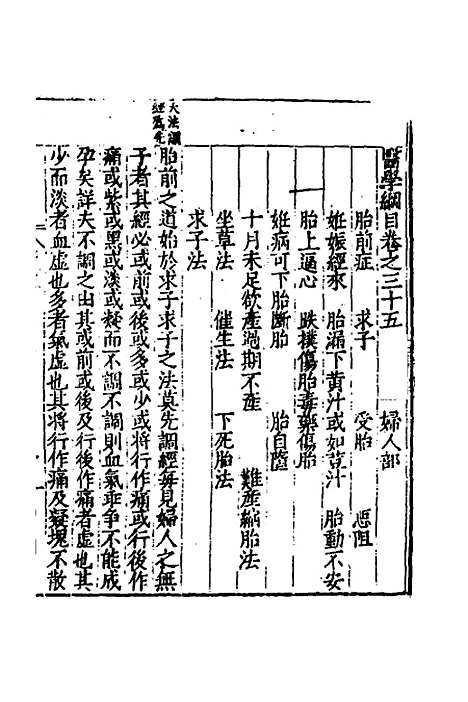 醫學綱目卷之三十五 婦人部
胎前症 求子 受胎 惡阻
妊娠經來 胎漏下黄汁或如荳汁 胎動不安
胎上逼心 跌撲傷胎毒藥傷胎
妊病可下胎斷胎 胎自墮
十月未足欲產過期不產 難產縮胎法
坐草法 催生法 下死胎法
求子法
大法調
經爲先
胎前之道始於求子求子之法莫先調經每見婦人之無
子者其經必或前或後或多或少或將行作痛或行後作
痛或紫或黑或淡或凝而不調不調則血氣乖爭不能成
孕矣詳夫不調之由其或前或後及行後作痛者虛也其
少而淡者血虛也多者氣虛也其將行作痛及凝塊不散